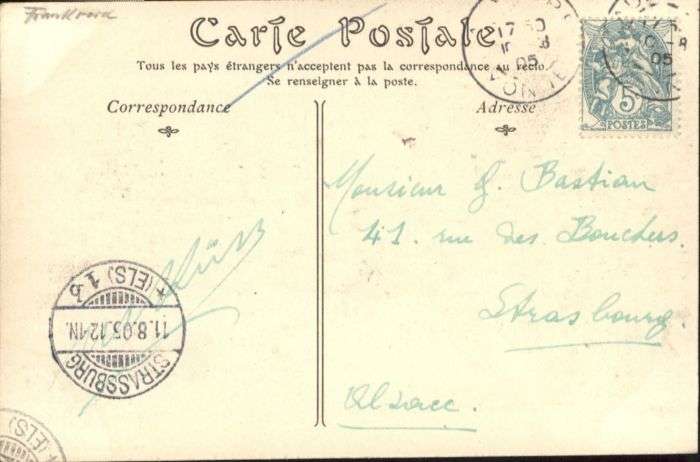 Carte Postale
Tous les pays étrangers n'acceptent pas la correspondance au recto.
Se renseigner à la poste.
Correspondance
Adresse
5
POSTES
Monsieur G. Bastian
41. rue des Bouchers.
Strasbourg
Alsace.
STRASSBURG
11.8.05.12-1N.
(ELS) 13
05
05
(ELS)